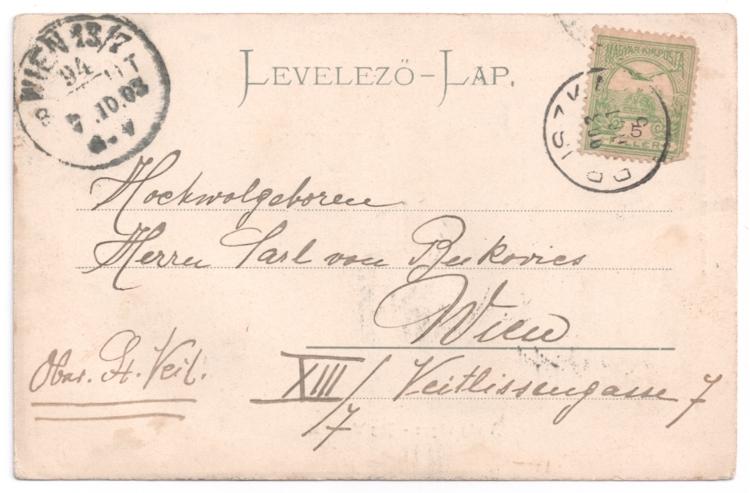 WIEN 13/7
94
10.03
MAGYAR KIR. POSTA
5
FILLÉR
LEVELEZŐ-LAP.
Hochwolgeboren
Herrn Carl von
Wien
Ober. St. Veit.
XIII/7 Veitlissengasse 7